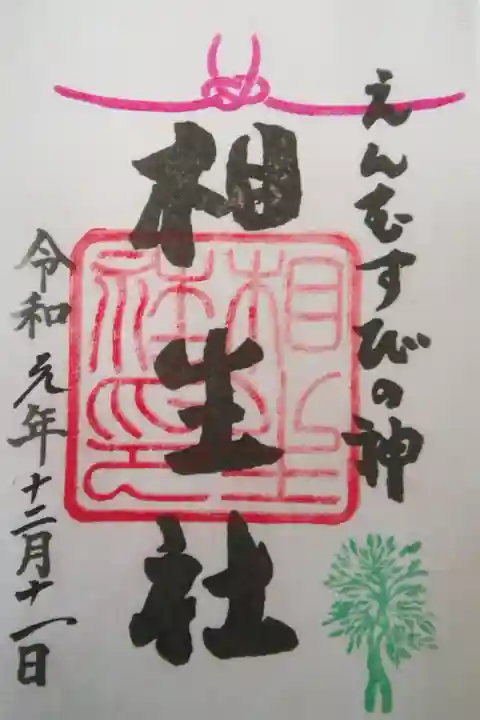 えんむすびの神
相生社
相生社印
令和元年十二月十一日